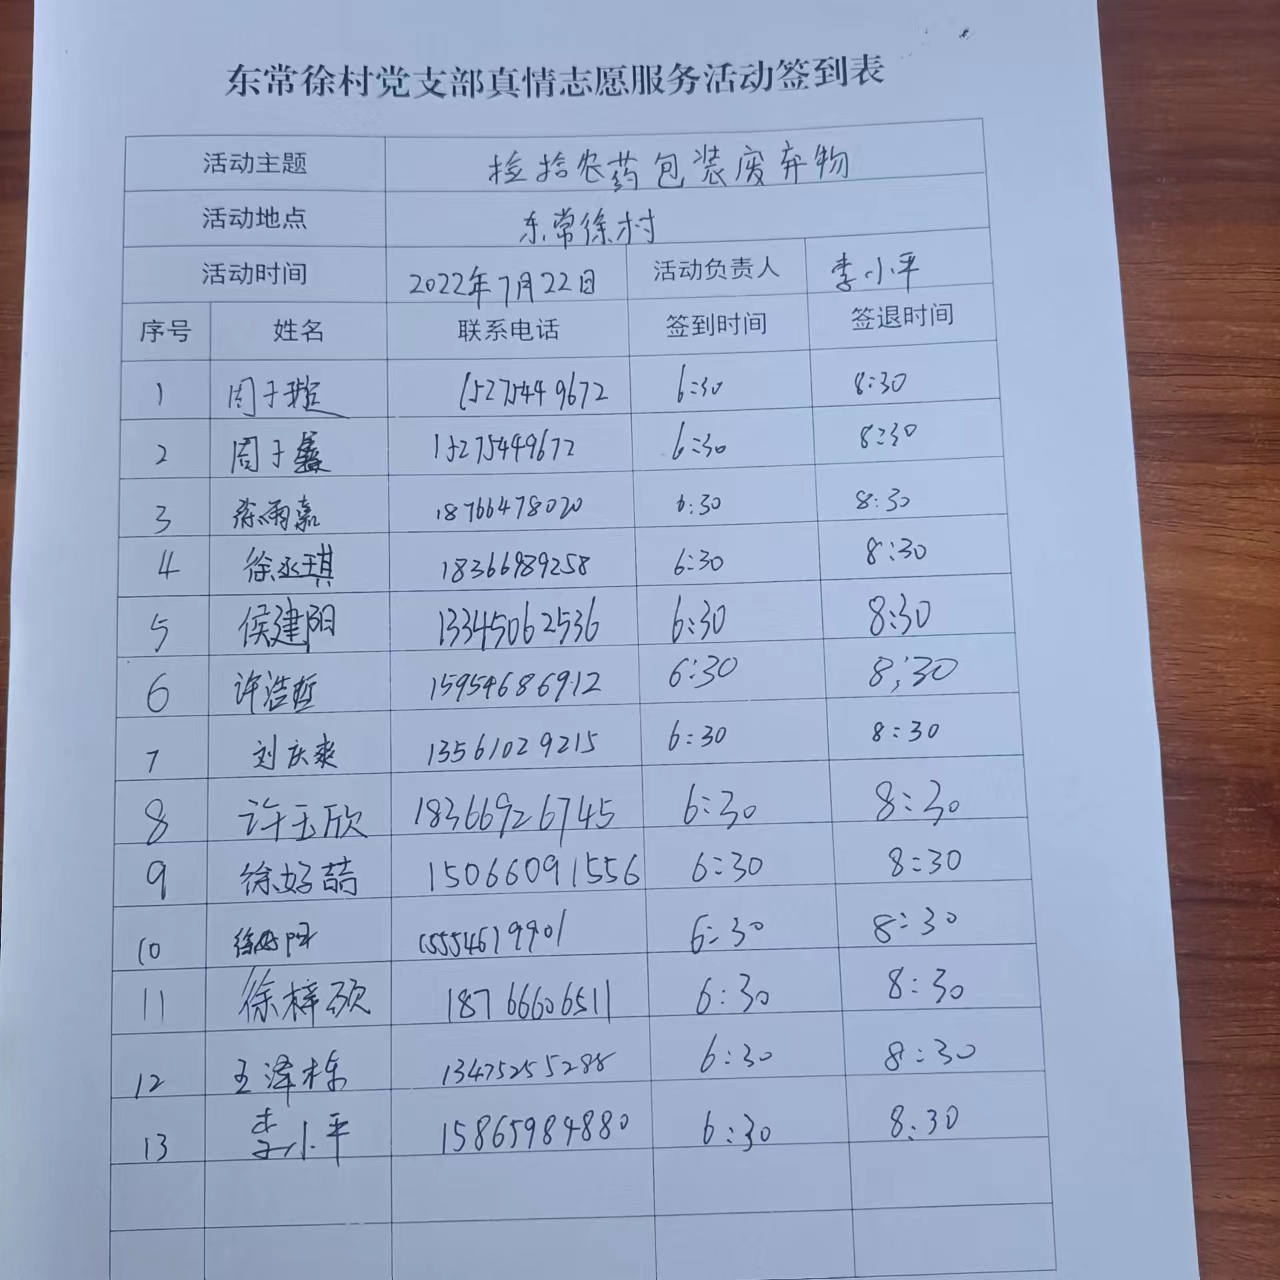 东常徐村党支部真情志愿服务活动签到表
活动主题 捡拾农药包装废弃物
活动地点 东常徐村
活动时间 2022年7月22日 活动负责人 李小平
序号 姓名 联系电话 签到时间 签退时间
1 周子琁 15275449672 6:30 8:30
2 周子鑫 15275449672 6:30 8:30
3 徐雨嘉 18766478020 6:30 8:30
4 徐丞琪 18366989258 6:30 8:30
5 侯建阳 13345062536 6:30 8:30
6 许浩哲 15954686912 6:30 8:30
7 刘庆爽 13561029215 6:30 8:30
8 许玉欣 18366926745 6:30 8:30
9 徐好喆 15066091556 6:30 8:30
10 15554619901 6:30 8:30
11 徐梓硕 18766606511 6:30 8:30
12 王泽栋 13475255288 6:30 8:30
13 李小平 15865984880 6:30 8:30